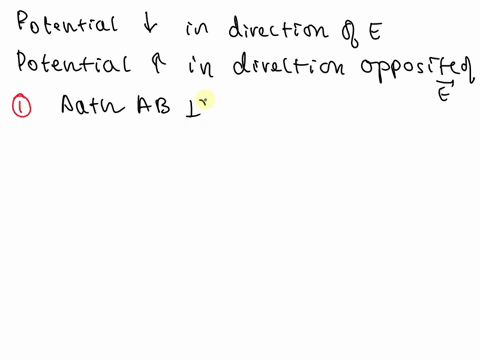 Potential ↓ in direction of E
Potential ↑ in direction opposite of
E⃗
① Aath AB ⊥r